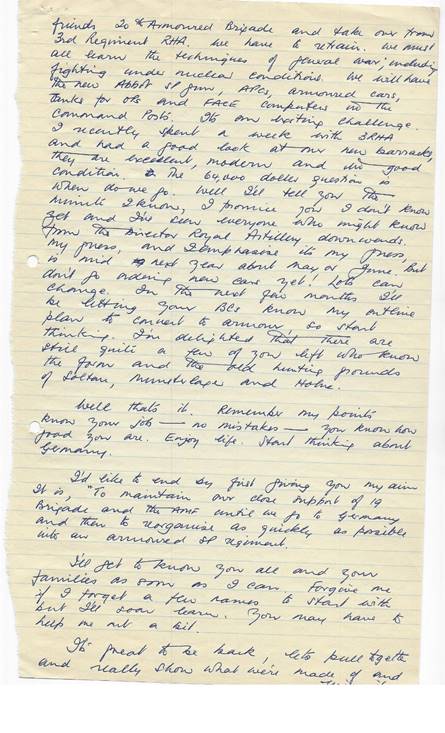 friends 20th Armoured Brigade and take over from
3rd Regiment RHA. We have to retrain. We must
all learn the techniques of general war, including
fighting under nuclear conditions. We will have
the new Abbot SP gun, APCs, armoured cars,
tanks for OPs and FACE computers in the
Command Posts. It's an exciting challenge.
I recently spent a week with 3RHA
and had a good look at our new barracks,
they are excellent, modern and in good
condition. The 64,000 dollar question is
when do we go. Well I'll tell you the
minute I know, I promise you I don't know
yet and I've seen everyone who might know
from the Director Royal Artillery downwards.
My guess, and I emphasise its my guess,
is mid next year about May or June. But
don't go ordering new cars yet! Lots can
change. In the next few months I'll
be letting your BCs know my outline
plan to convert to armour, so start
thinking. I'm delighted that there are
still quite a few of you left who know
the form and the old hunting grounds
of Soltau, Munsterlager and Hohne.
Well thats it. Remember my points
know your job — no mistakes — you know how
good you are. Enjoy life. Start thinking about
Germany.
I'd like to end by just giving you my aim
It is, "To maintain our close support of 19
Brigade and the AMF until we go to Germany
and then to reorganise as quickly as possible
into an armoured SP regiment.
I'll get to know you all and your
families as soon as I can. Forgive me
if I forget a few names to start with
but I'll soon learn. You may have to
help me out a bit.
It's great to be back, lets pull together
and really show what we're made of and